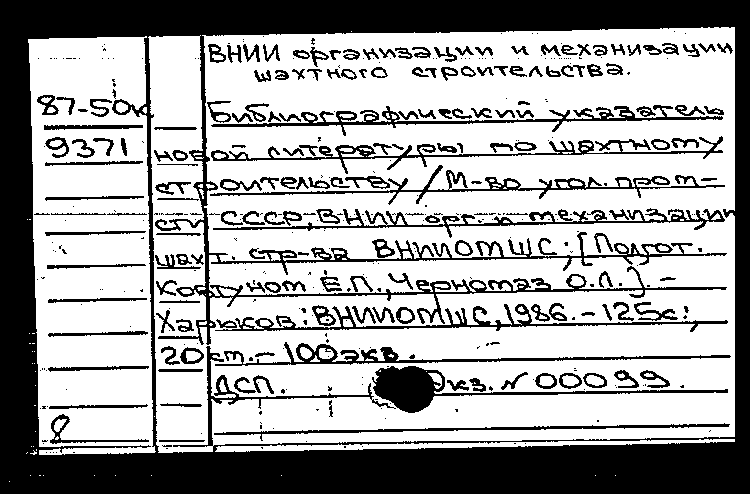 ВНИИ организации и механизации
шахтного строительства.
87-50к Библиографический указатель
9371 новой литературы по шахтному
строительству / М-во угол. пром-
сти СССР, ВНИИ орг. и механизации
шахт. стр-ва ВНИИОМШС; [Подгот.
Ковтуном Е.П., Черномаз О.Л.]. -
Харьков: ВНИИОМШС, 1986. - 125с.;
20 см. - 100 экз.
ДСП. Экз. № 00099.
8